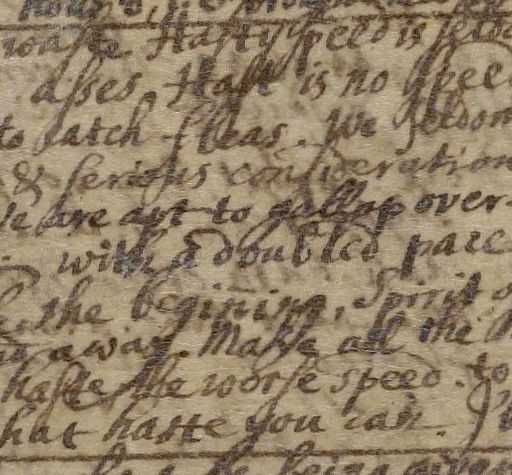 waste. Hasty speed is seldo
asses. Hast is no speed
to catch fleas. We seldom
& serious consideration
We are apt to gallop over
with a doubled pace
the begining, Spirit
away. Make all the
haste the worse speed. to
what haste you can.
being